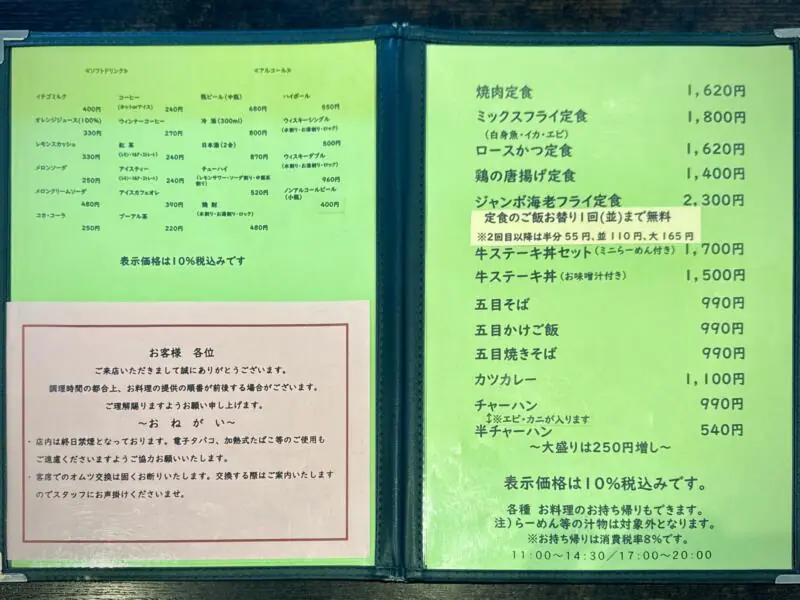 ≪ソフトドリンク≫
イチゴミルク 400円
オレンジジュース(100%) 330円
レモンスカッシュ 330円
メロンソーダ 250円
メロンクリームソーダ 480円
コカ・コーラ 250円
コーヒー
(ホットorアイス) 240円
ウィンナーコーヒー 270円
紅茶
(レモン・ミルク・ストレート) 240円
アイスティー
(レモン・ミルク・ストレート) 240円
アイスカフェオレ 390円
プーアル茶 220円
≪アルコール≫
瓶ビール(中瓶) 680円
冷酒(300ml) 800円
日本酒(2合) 870円
チューハイ
(レモンサワー・ソーダ割り・中瓶茶割り) 520円
焼酎
(水割り・お湯割り・ロック) 480円
ハイボール 650円
ウィスキーシングル
(水割り・お湯割り・ロック) 500円
ウィスキーダブル
(水割り・お湯割り・ロック) 960円
ノンアルコールビール
(小瓶) 400円
表示価格は10%税込みです
お客様 各位
ご来店いただきまして誠にありがとうございます。
調理時間の都合上、お料理の提供の順番が前後する場合がございます。
ご理解賜りますようお願い申し上げます。
～お ね が い～
・店内は終日禁煙となっております。電子タバコ、加熱式たばこ等のご使用も
ご遠慮くださいますようご協力お願いいたします。
・客席でのオムツ交換は固くお断りいたします。交換する際はご案内いたします
のでスタッフにお声掛けくださいませ。
焼肉定食 1,620円
ミックスフライ定食 1,800円
(白身魚・イカ・エビ)
ロースかつ定食 1,620円
鶏の唐揚げ定食 1,400円
ジャンボ海老フライ定食 2,300円
定食のご飯お替り1回(並)まで無料
※2回目以降は半分55円、並110円、大165円
牛ステーキ丼セット(ミニらーめん付き) 1,700円
牛ステーキ丼(お味噌汁付き) 1,500円
五目そば 990円
五目かけご飯 990円
五目焼きそば 990円
カツカレー 1,100円
チャーハン 990円
↕※エビ・カニが入ります
半チャーハン 540円
～大盛りは250円増し～
表示価格は10%税込みです。
各種 お料理のお持ち帰りもできます。
注)らーめん等の汁物は対象外となります。
※お持ち帰りは消費税率8%です。
11:00～14:30/17:00～20:00